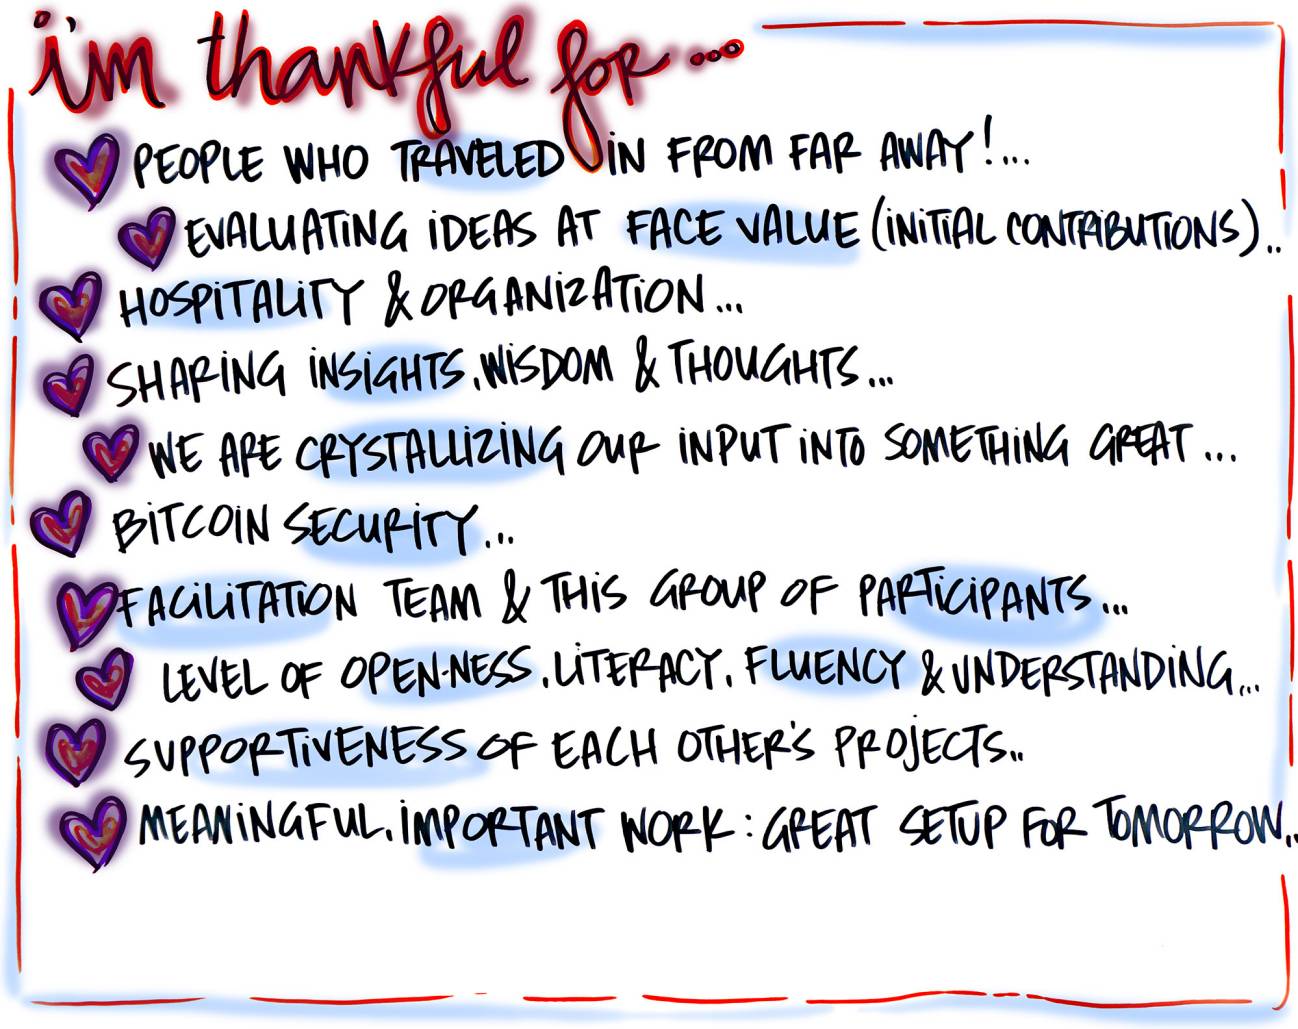 i'm thankful for...
PEOPLE WHO TRAVELED IN FROM FAR AWAY!...
EVALUATING IDEAS AT FACE VALUE (INITIAL CONTRIBUTIONS)..
HOSPITALITY & ORGANIZATION...
SHARING INSIGHTS, WISDOM & THOUGHTS...
WE ARE CRYSTALLIZING OUR INPUT INTO SOMETHING GREAT...
BITCOIN SECURITY...
FACILITATION TEAM & THIS GROUP OF PARTICIPANTS...
LEVEL OF OPEN-NESS, LITERACY, FLUENCY & UNDERSTANDING...
SUPPORTIVENESS OF EACH OTHER'S PROJECTS..
MEANINGFUL, IMPORTANT WORK: GREAT SETUP FOR TOMORROW..